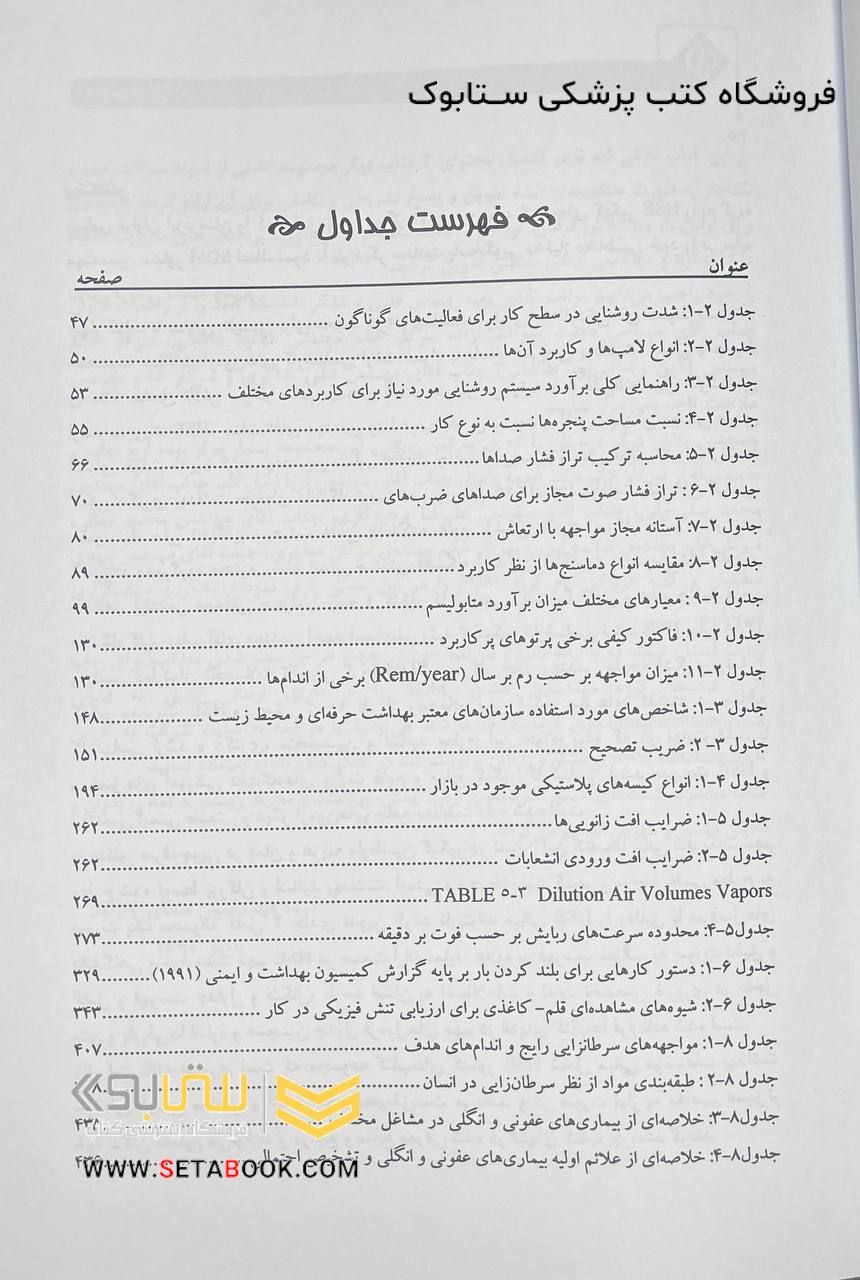 فروشگاه کتب پزشکی ستابوک
فهرست جداول
عنوان
صفحه
جدول ۲-۱: شدت روشنایی در سطح کار برای فعالیت‌های گوناگون ............ ۴۷
جدول ۲-۲: انواع لامپ‌ها و کاربرد آن‌ها ............ ۵۰
جدول ۲-۳: راهنمایی کلی برآورد سیستم روشنایی مورد نیاز برای کاربردهای مختلف ............ ۵۳
جدول ۲-۴: نسبت مساحت پنجره‌ها نسبت به نوع کار ............ ۵۵
جدول ۲-۵: محاسبه ترکیب تراز فشار صداها ............ ۶۶
جدول ۲-۶ : تراز فشار صوت مجاز برای صداهای ضرب‌های ............ ۷۰
جدول ۲-۷: آستانه مجاز مواجهه با ارتعاش ............ ۸۰
جدول ۲-۸: مقایسه انواع دماسنج‌ها از نظر کاربرد ............ ۸۹
جدول ۲-۹ : معیارهای مختلف میزان برآورد متابولیسم ............ ۹۹
جدول ۲-۱۰: فاکتور کیفی برخی پرتوهای پرکاربرد ............ ۱۳۰
جدول ۲-۱۱: میزان مواجهه بر حسب رم بر سال (Rem/year) برخی از اندام‌ها ............ ۱۳۰
جدول ۳-۱: شاخص‌های مورد استفاده سازمان‌های معتبر بهداشت حرفه‌ای و محیط زیست ............ ۱۴۸
جدول ۳- ۲: ضریب تصحیح ............ ۱۵۱
جدول ۴-۱: انواع کیسه‌های پلاستیکی موجود در بازار ............ ۱۹۴
جدول ۵-۱: ضرایب افت زانویی‌ها ............ ۲۶۲
جدول ۵-۲: ضرایب افت ورودی انشعابات ............ ۲۶۲
TABLE ۵-۳ Dilution Air Volumes Vapors ............ ۲۶۹
جدول۵-۴: محدوده سرعت‌های ربایش بر حسب فوت بر دقیقه ............ ۲۷۳
جدول ۶-۱: دستور کارهایی برای بلند کردن بار بر پایه گزارش کمیسیون بهداشت و ایمنی (۱۹۹۱) ......... ۳۲۹
جدول ۶-۲: شیوه‌های مشاهده‌ای قلم- کاغذی برای ارزیابی تنش فیزیکی در کار ............ ۳۴۳
جدول ۸-۱: مواجهه‌های سرطانزایی رایج و اندام‌های هدف ............ ۴۰۷
جدول ۸-۲ : طبقه‌بندی مواد از نظر سرطان‌زایی در انسان ............
جدول۸-۳: خلاصه‌ای از بیماری‌های عفونی و انگلی در مشاغل ............
جدول۸-۴: خلاصه‌ای از علائم اولیه بیماری‌های عفونی و انگلی و تشخیص احتمالی ............
ستابوک
فروشگاه اینترنتی کتاب
WWW.SETABOOK.COM